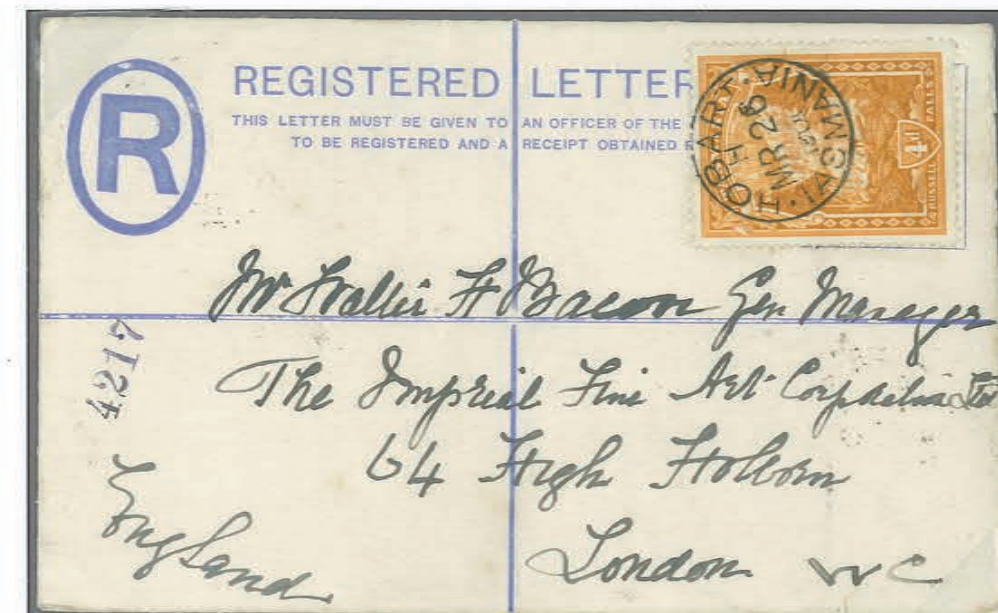 R
REGISTERED LETTER
THIS LETTER MUST BE GIVEN TO AN OFFICER OF THE
TO BE REGISTERED AND A RECEIPT OBTAINED
HOBART
MR 26
TASMANIA
4d
RUSSELL FALLS
Mr Walter H Bacon Gen Manager
The Imperial Fine Art Corporation Ltd
64 High Holborn
London W C
England
4217